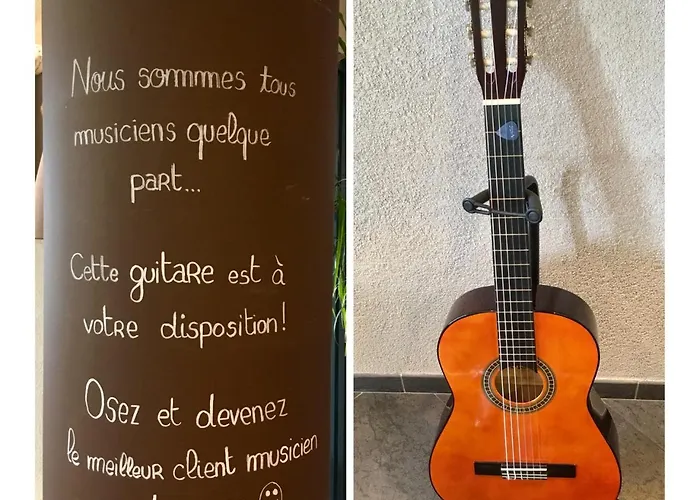 Nous sommmes tous
musiciens quelque
part...
Cette guitare est à
votre disposition!
Osez et devenez
le meilleur client musicien